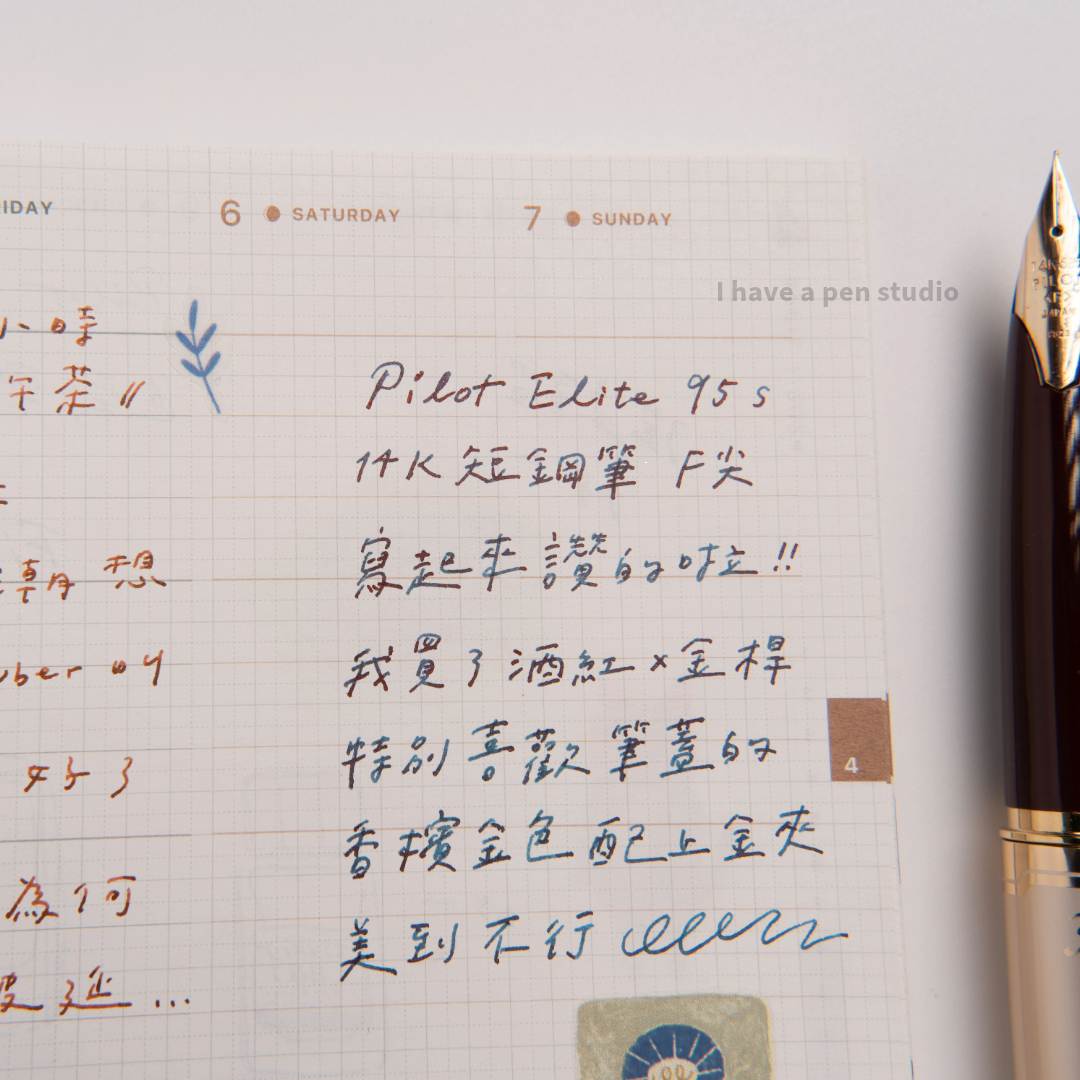 6 SATURDAY
7 SUNDAY
I have a pen studio
午茶 //
想
04
好了
為何
延...
Pilot Elite 95s
14K 短鋼筆 F尖
寫起來讚的啦!!
我買了酒紅×金桿
特別喜歡筆蓋的
香檳金色配上金夾
美到不行
4